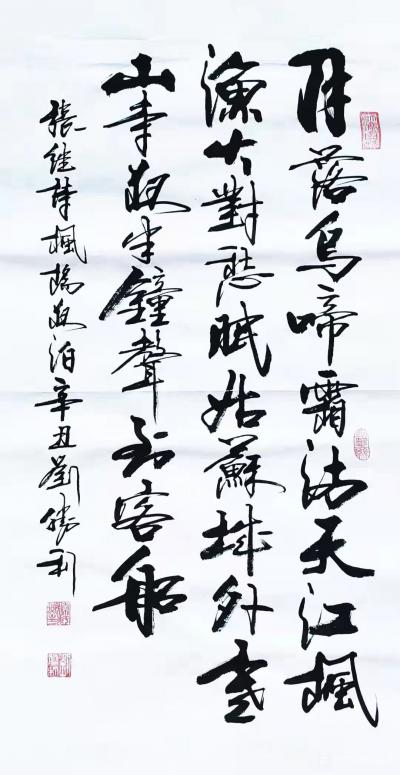 月落烏啼霜滿天江楓
漁火對愁眠姑蘇城外寒
山寺夜半鐘聲到客船
張继詩楓橋夜泊辛丑劉勝利